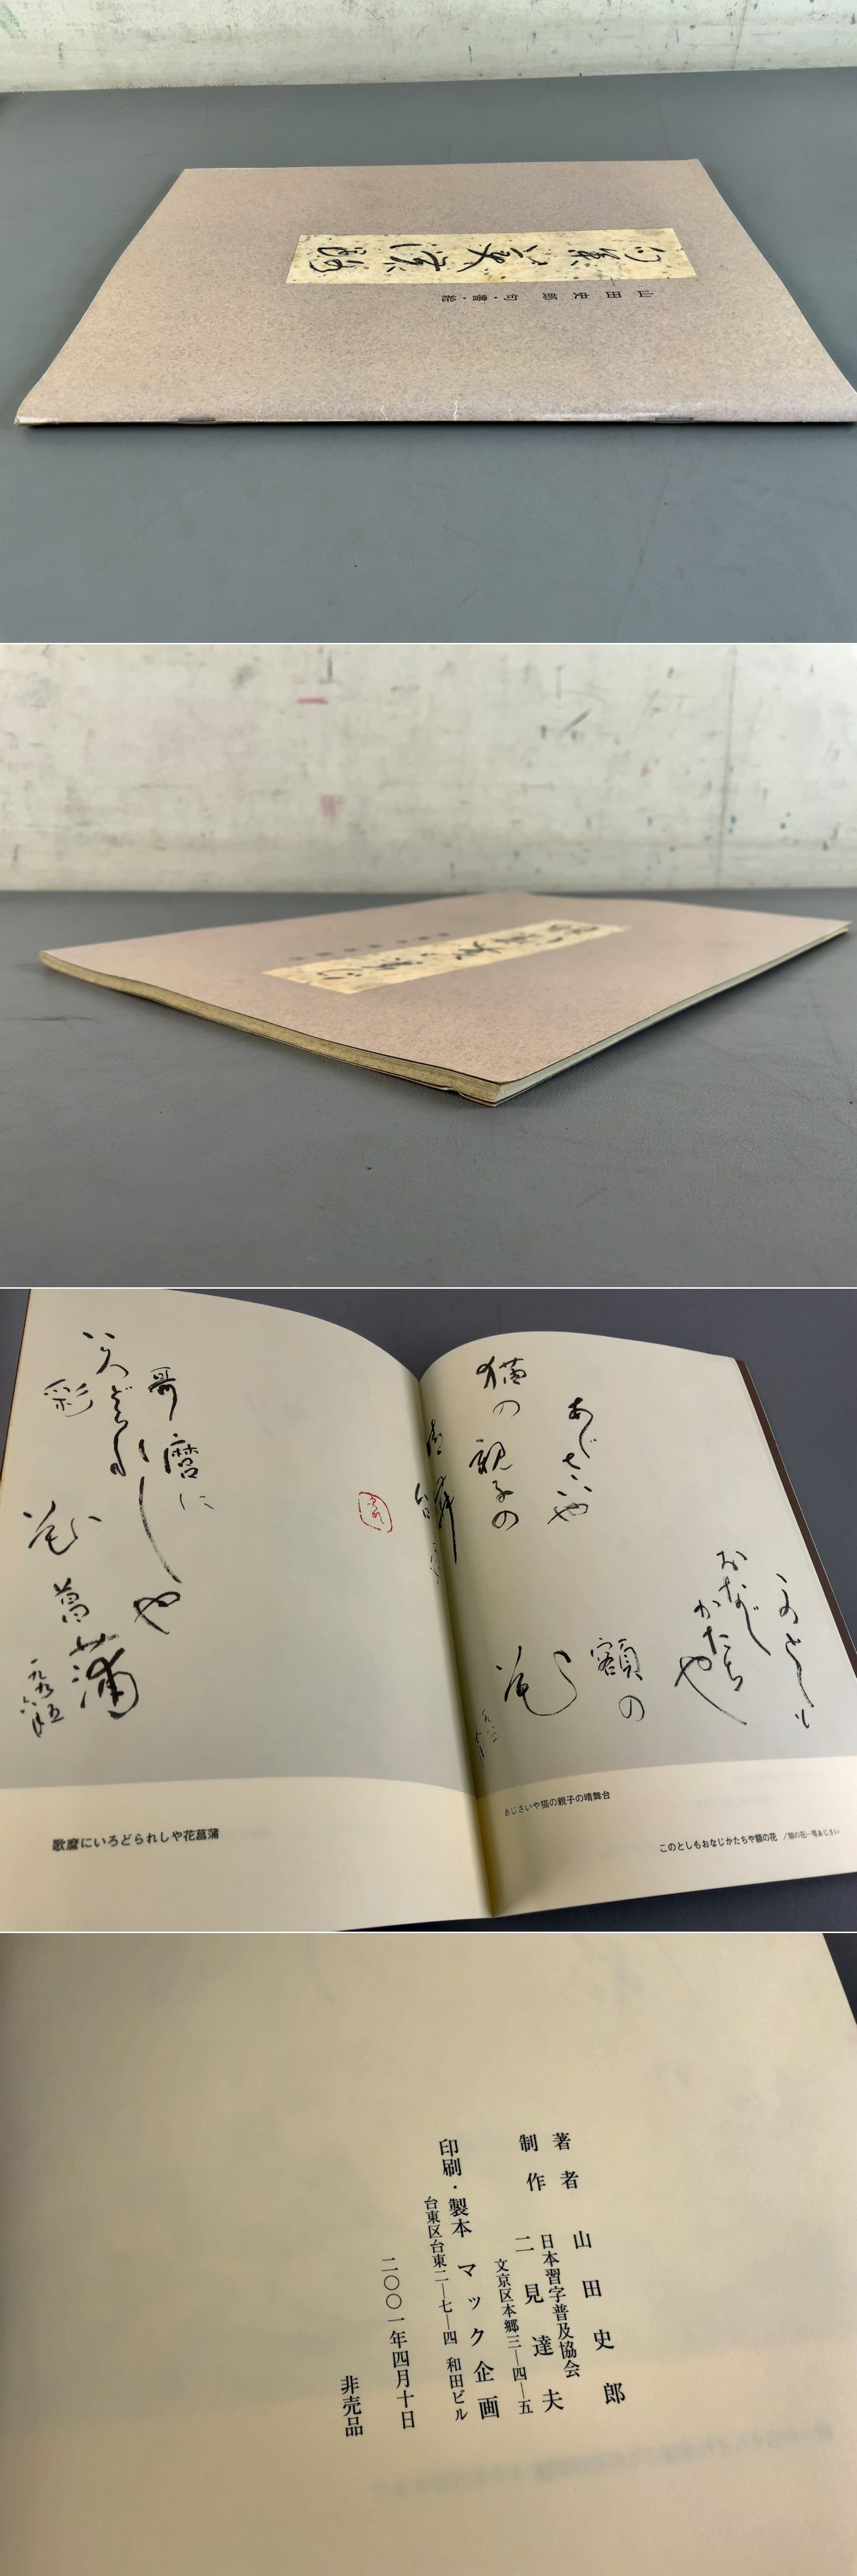 山田史郎 句・書・絵
あじさいや
猫の親子の
晴舞台
このとしも
おなじ
かたちや
額の
花
哥麿に
いろどられしや
彩
花菖蒲
一九九五
六月
あじさいや猫の親子の晴舞台
このとしもおなじかたちや額の花 /額の花…萼あじさい
歌麿にいろどられしや花菖蒲
著者 山田史郎
日本習字普及協会
制作 二見達夫
文京区本郷三―四―五
印刷・製本 マック企画
台東区台東二―七―四 和田ビル
二〇〇一年四月十日
非売品